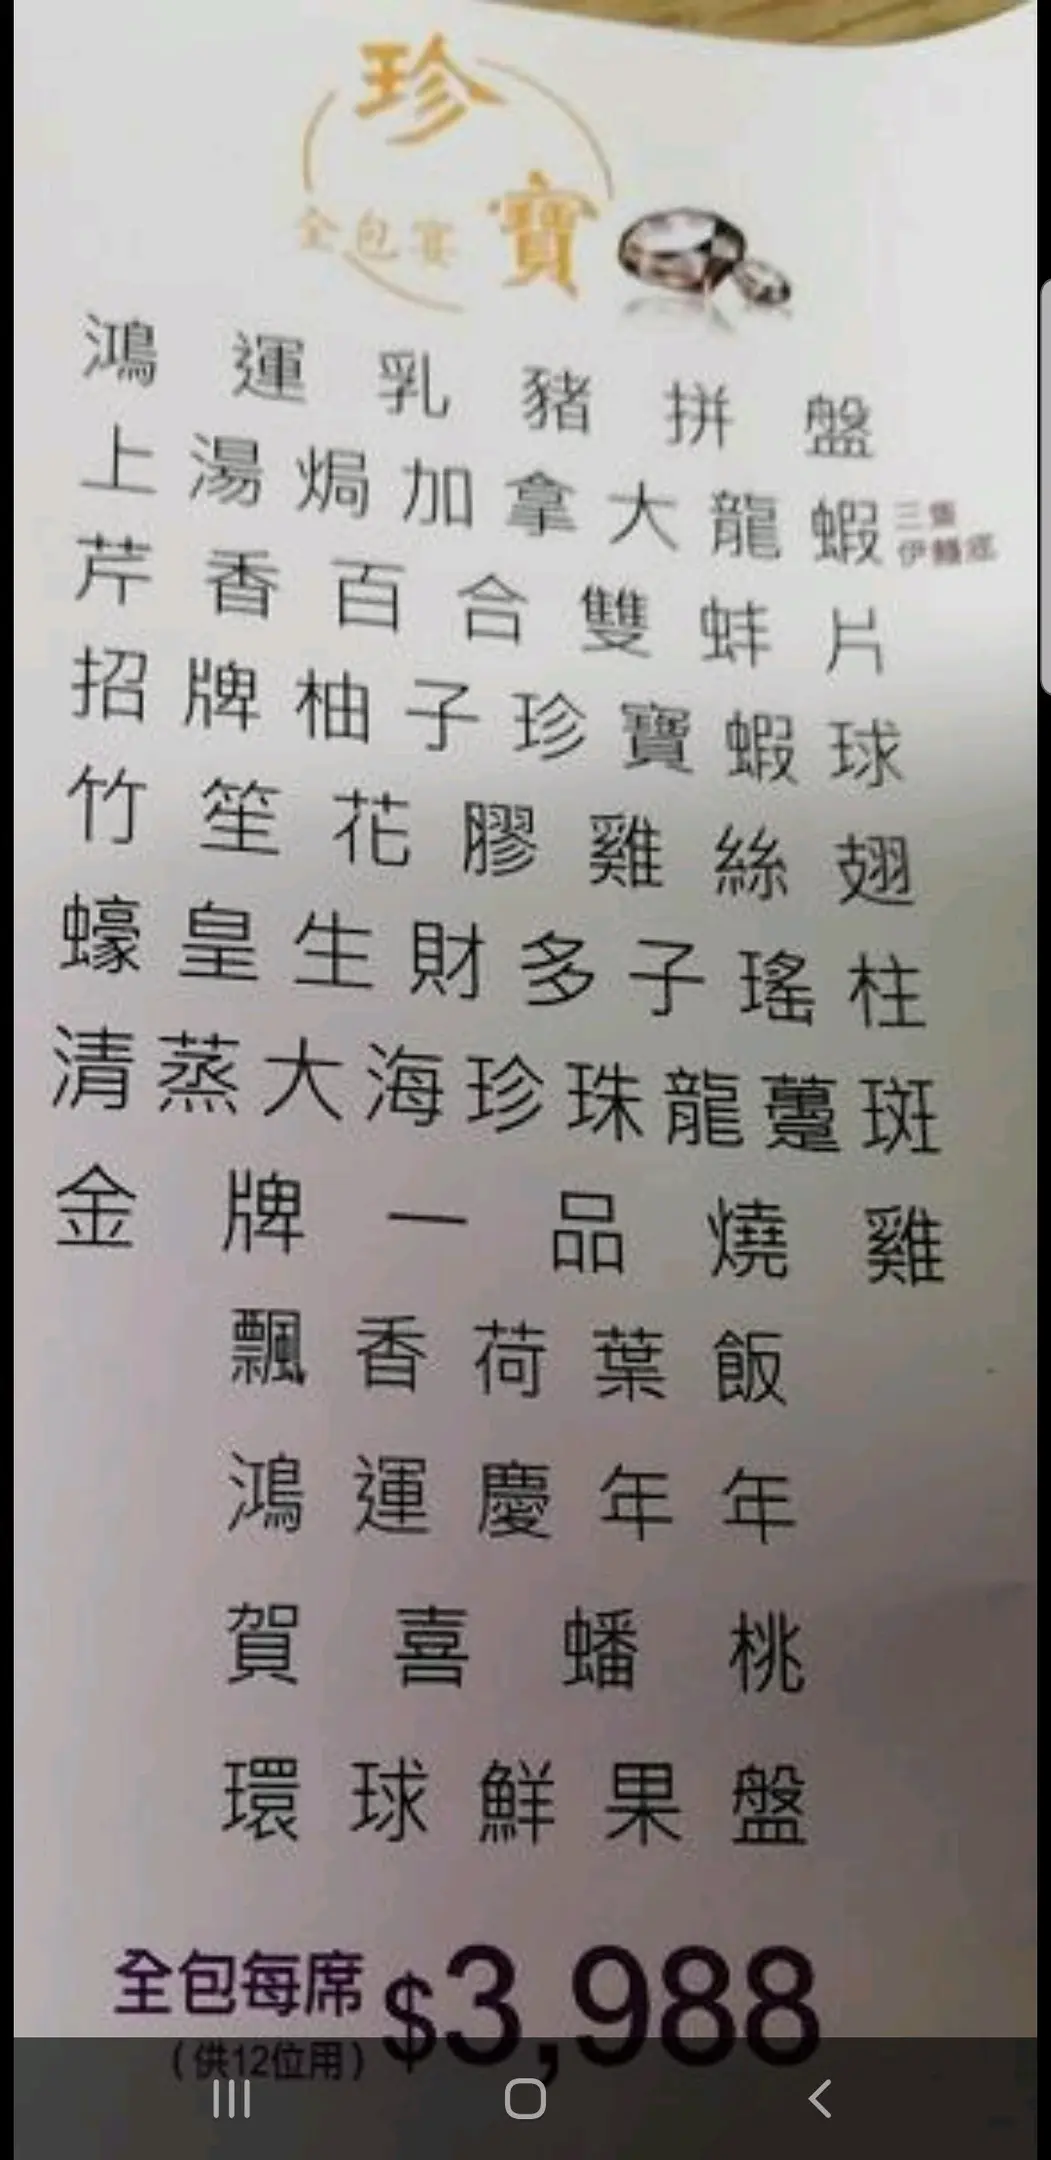 珍寶
全包宴
鴻運乳豬拼盤
上湯焗加拿大龍蝦 三隻 伊麵底
芹香百合雙蚌片
招牌柚子珍寶蝦球
竹笙花膠雞絲翅
蠔皇生財多子瑤柱
清蒸大海珍珠龍躉斑
金牌一品燒雞
飄香荷葉飯
鴻運慶年年
賀喜蟠桃
環球鮮果盤
全包每席 $3,988
(供12位用)